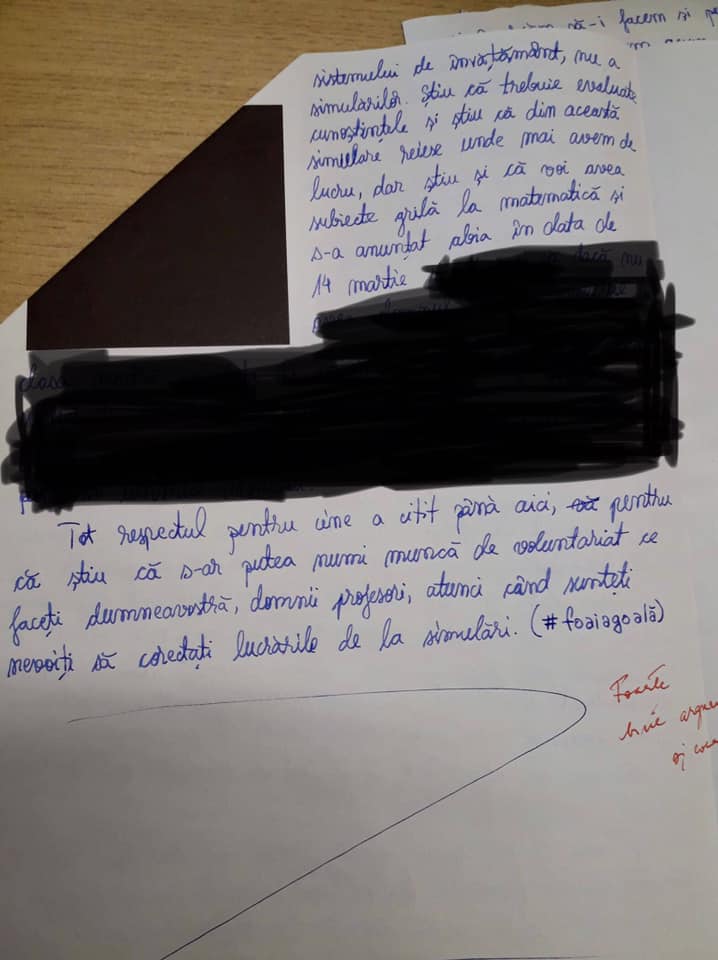 să-i facem și
sistemului de învățământ, nu a
simulărilor. Știu că trebuie evaluate
cunoștințele și știu că din această
simulare reiese unde mai avem de
lucru, dar știu și că voi avea
subiecte grilă la matematică și
s-a anunțat abia în data de
14 martie dacă nu
Tot respectul pentru cine a citit până aici, pentru
că știu că s-ar putea numi muncă de voluntariat ce
faceți dumneavostră, domnii profesori, atunci când sunteți
nevoiți să corectați lucrările de la simulări. (#foaiagoală)
Foarte
bine
și